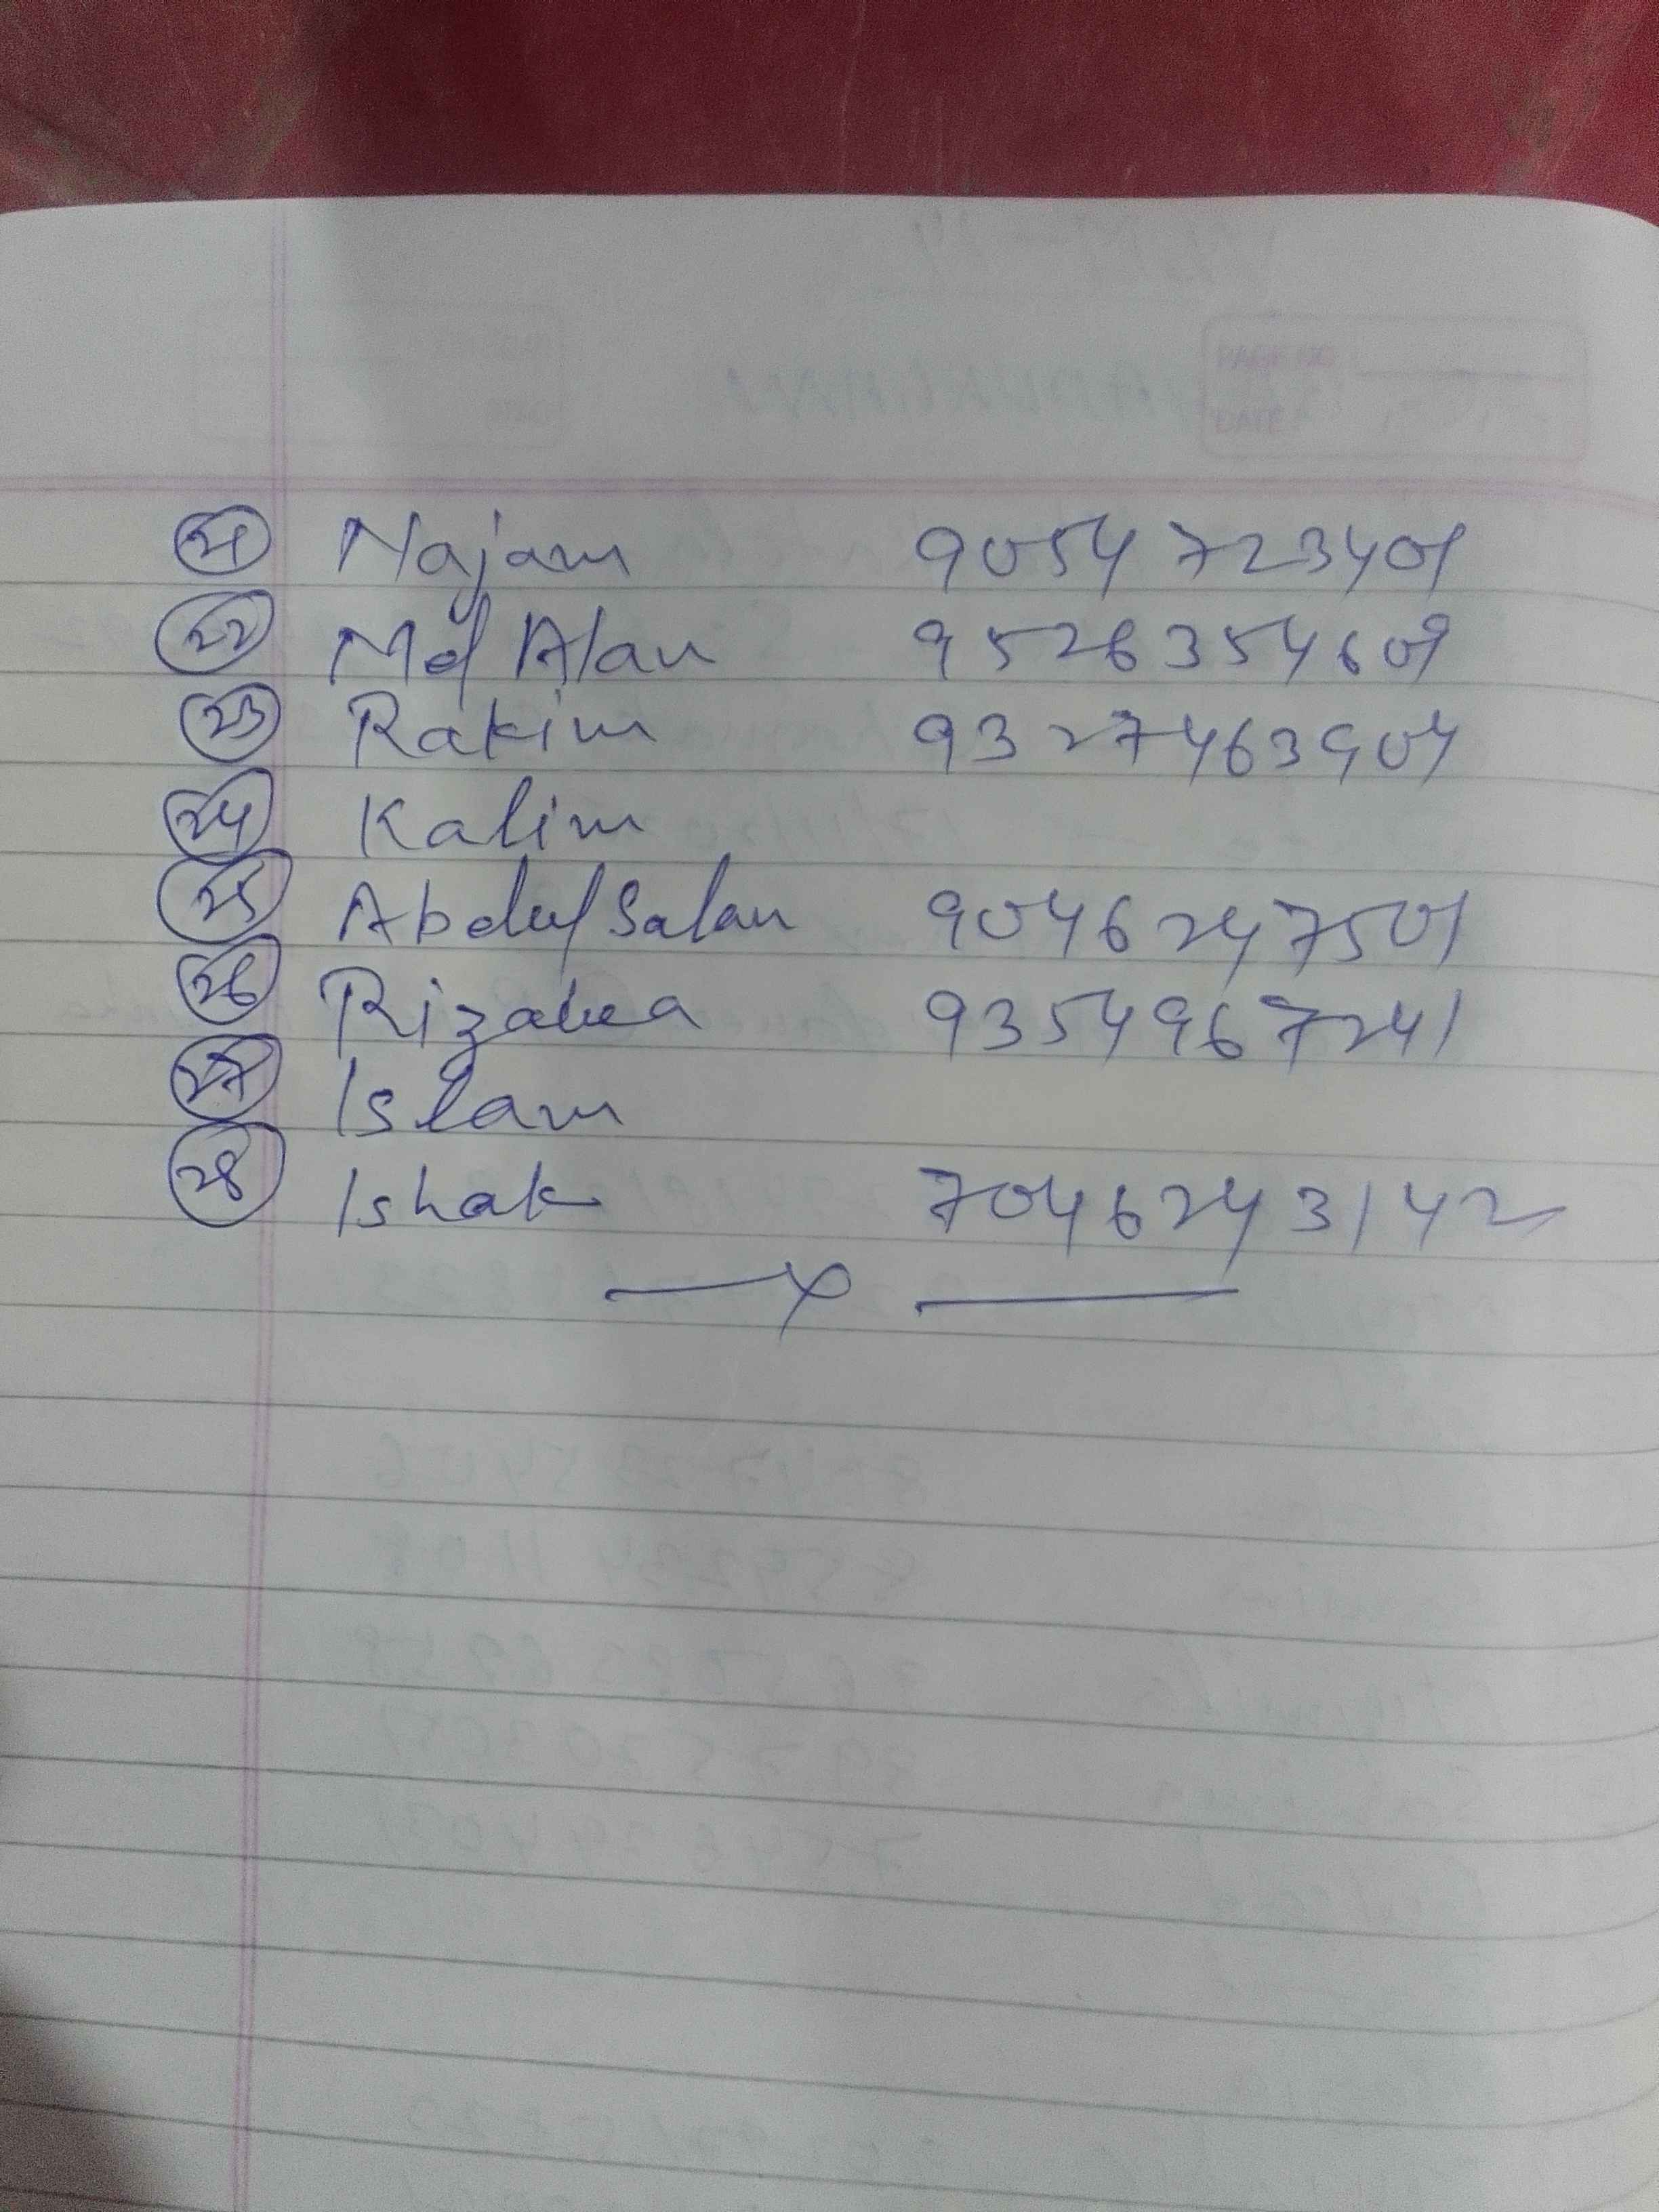 PAGE NO
DATE
21 Najam 9054723401
22 Md Alam 9526354609
23 Rakim 9327463904
24 Kalim
25 Abdul Salam 9046247501
26 9354967241
27 Islam
28 Ishak 7046243142
— x —